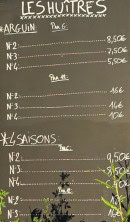 LES HUÎTRES
*ARGUIN: Par 6
N°2 8,50€
N°3 7,50€
N°4 5,50€
Par 12
N°2 16€
N°3 14€
N°4 10€
*4 SAISONS:
N°2 9,50€
N°3
N°4
N°2
N°3